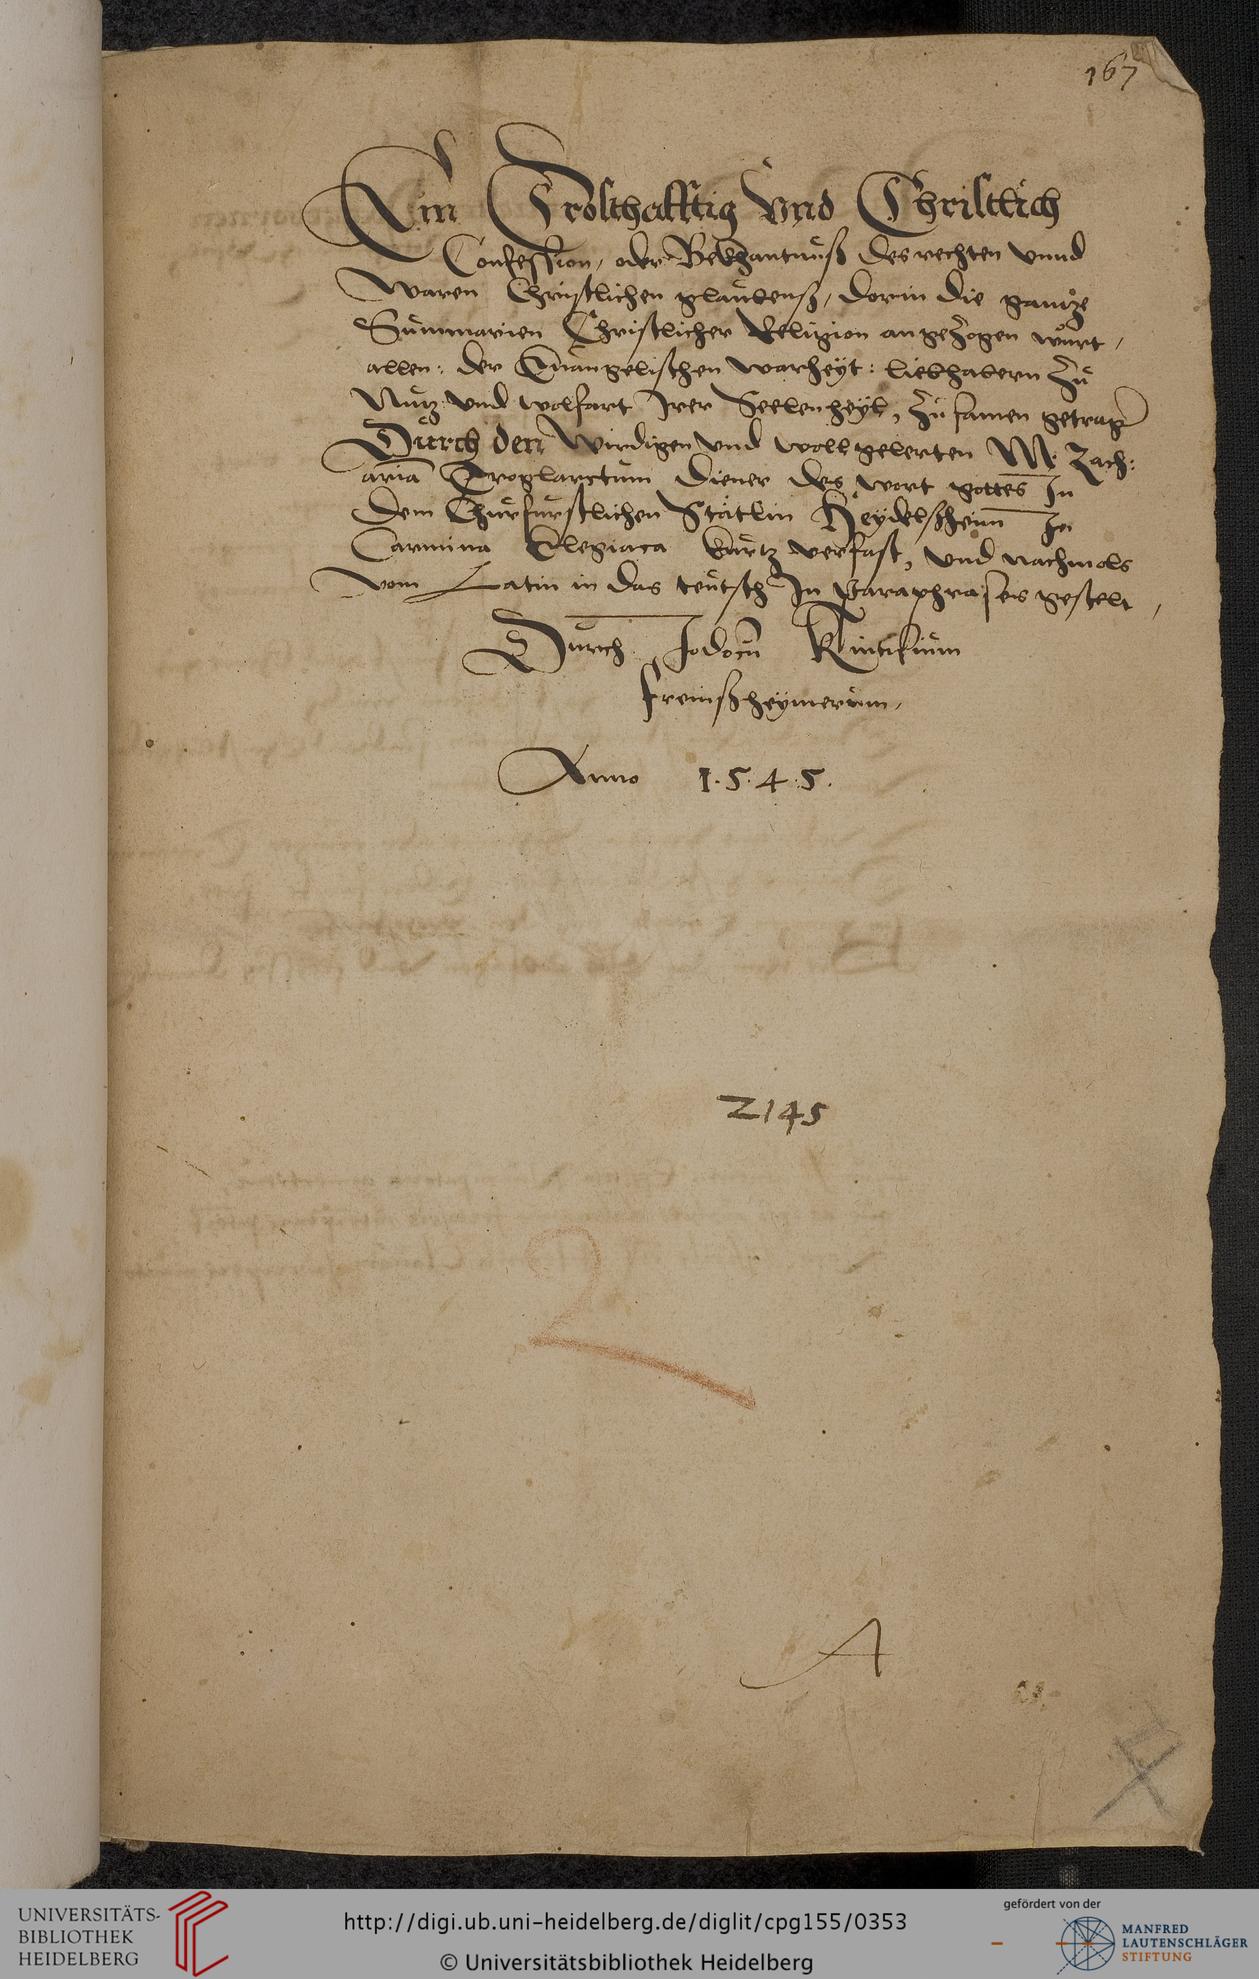 167
Ein Trosthafftig Vnd Christlich
Confession, oder Bekhantnuß des rechten vnnd
Waren Christlichen glaubens, dorin die gantze
Summarien Christlicher Religion angezogen würt,
allen: der Euangelischen warheyt: liebhabern zu
Nutz vnd wolfart Irer Seelenheyl, zusamen getrag
Durch den Wirdigen vnd wollgelerten M. Zach:
aria diener des wort gottes In
dem Churfurstlichen Stätlin Heydelßheim In
Carmina Elegiaca kurtz verfast, vnd nachmols
vom Latin in das teutsch In Paraphrases gestelt,
Durch Jodocu
freinßheymerum,
Anno 1.5.4.5.
2145
2
A
UNIVERSITÄTS-
BIBLIOTHEK
HEIDELBERG
http://digi.ub.uni-heidelberg.de/diglit/cpg155/0353
© Universitätsbibliothek Heidelberg
gefördert von der
MANFRED
LAUTENSCHLÄGER
STIFTUNG